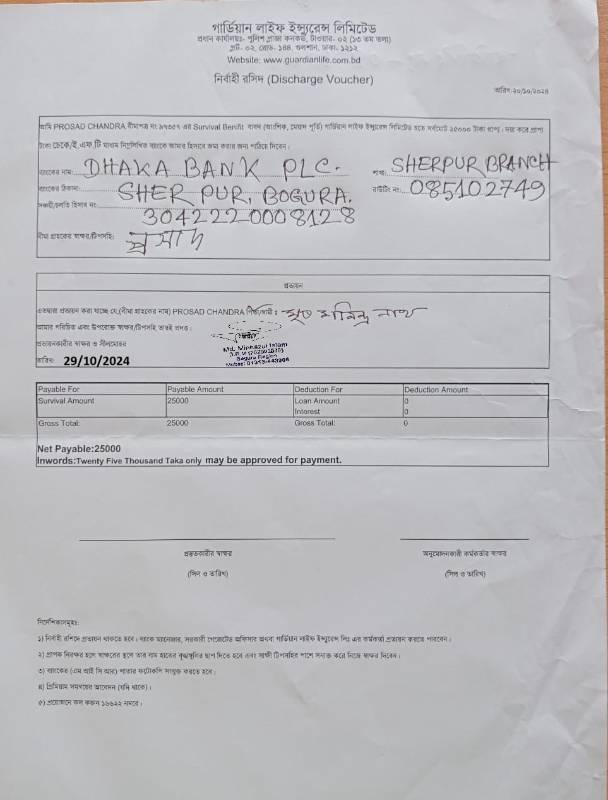 গার্ডিয়ান লাইফ ইন্স্যুরেন্স লিমিটেড
প্রধান কার্যালয়ঃ- পুলিশ প্লাজা কনকর্ড, টাওয়ার- ০২ (১৩ তম তলা)
প্লট- ০২, রোড- ১৪৪, গুলশান, ঢাকা- ১২১২
Website: www.guardianlife.com.bd
নির্বাহী রসিদ (Discharge Voucher)
তারিখ:২০/১০/২০২৪
আমি PROSAD CHANDRA বীমাপত্র নং এর Survival Benifit বাবদ (আংশিক, মেয়াদ পূর্তি) গার্ডিয়ান লাইফ ইন্স্যুরেন্স লিমিটেড হতে সর্বমোট ২৫০০০ টাকা প্রাপ্য। দয়া করে প্রাপ্য
টাকা চেকে/ই.এফ.টি মাধ্যম নিম্নলিখিত ব্যাংকে আমার হিসাবে জমা করার জন্য পাঠিয়ে দিবেন।
ব্যাংকের নাম: DHAKA BANK PLC. শাখা: SHERPUR BRANCH
ব্যাংকের ঠিকানা: SHERPUR, BOGURA. রাউটিং নং: 085102749
সঞ্চয়ী/চলতি হিসাব নং: 3042220008128
বীমা গ্রাহকের স্বাক্ষর/টিপসহি: প্রসাদ
প্রত্যয়ন
এতদ্বারা প্রত্যয়ন করা যাচ্ছে যে,(বীমা গ্রাহকের নাম) PROSAD CHANDRA পিতা/স্বামী : মৃত মনিন্দ্র নাথ
আমার পরিচিত এবং উপরোক্ত স্বাক্ষর/টিপসহি তারই প্রদত্ত।
প্রত্যয়নকারীর স্বাক্ষর ও সীলমোহর
Md. Minhazul Islam
Bogura Region
তারিখ: 29/10/2024
Payable For Payable Amount Deduction For Deduction Amount
Survival Amount 25000 Loan Amount 0
Interest 0
Gross Total: 25000 Gross Total: 0
Net Payable:25000
Inwords:Twenty Five Thousand Taka only may be approved for payment.
প্রস্তুতকারীর স্বাক্ষর অনুমোদনকারী কর্মকর্তার স্বাক্ষর
(সিল ও তারিখ) (সিল ও তারিখ)
নির্দেশিকাসমূহঃ
১) নির্বাহী রশিদে প্রত্যয়ন থাকতে হবে। ব্যাংক ম্যানেজার, সরকারী গেজেটেড অফিসার অথবা গার্ডিয়ান লাইফ ইন্স্যুরেন্স লিঃ এর কর্মকর্তা প্রত্যয়ন করতে পারবেন।
২) প্রাপক নিরক্ষর হলে স্বাক্ষরের স্থলে তার বাম হাতের বৃদ্ধাঙ্গুলির ছাপ দিতে হবে এবং সাক্ষী টিপসহির পাশে সনাক্ত করে নিজে স্বাক্ষর দিবেন।
৩) ব্যাংকের (এম আই সি আর) পাতার ফটোকপি সংযুক্ত করতে হবে।
৪) প্রিমিয়াম সমন্বয়ের আবেদন (যদি থাকে)।
৫) প্রয়োজনে কল করুন ১৬৬২২ নম্বরে।